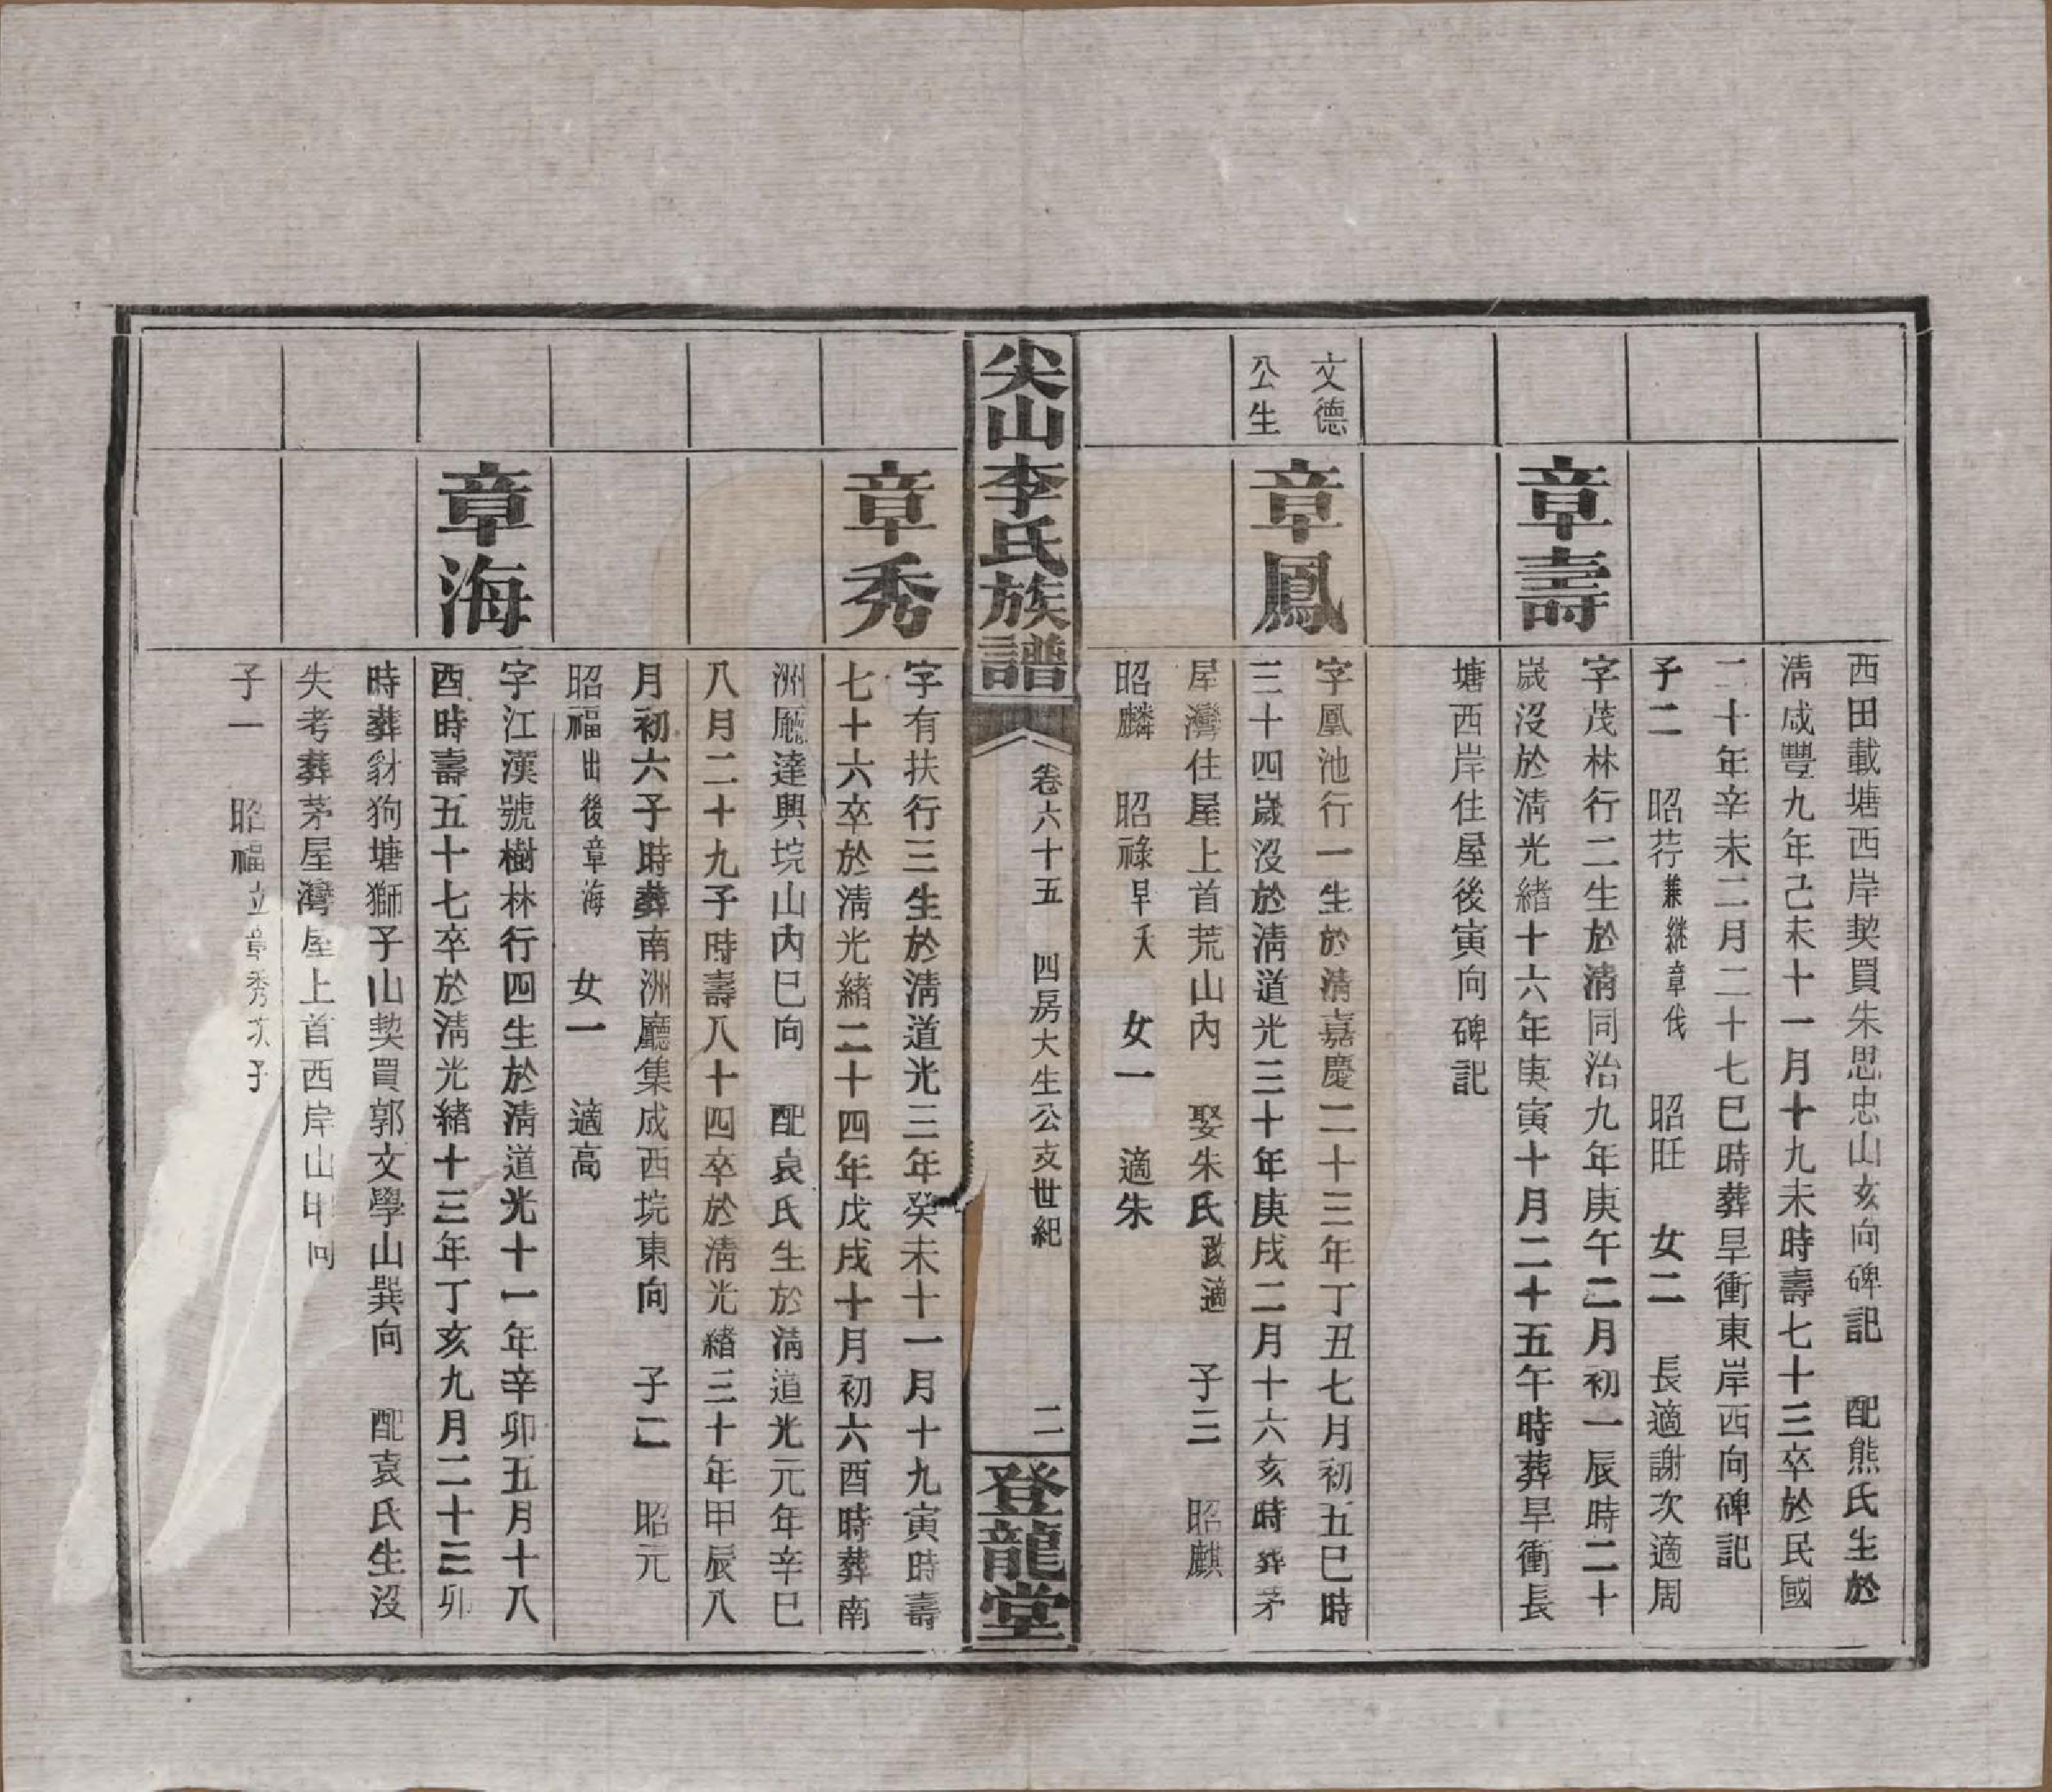 西田載塘西岸契買朱思忠山亥向碑記　配熊氏生於
清咸豐九年己未十一月十九未時壽七十三卒於民國
二十年辛未二月二十七巳時葬旱衝東岸西向碑記
子二　昭荇兼継章伐　昭旺　女二　長適謝次適周
章壽
字茂林行二生於清同治九年庚午二月初一辰時二十
歲沒於清光緒十六年庚寅十月二十五午時葬旱衝長
塘西岸住屋後寅向碑記
文德
公生
章鳳
字凰池行一生於清嘉慶二十三年丁丑七月初五巳時
三十四歲沒於清道光三十年庚戌二月十六亥時葬茅
屋灣住屋上首荒山內　娶朱氏改適　子三　昭麒
昭麟　昭祿早夭　女一　適朱
尖山李氏族譜
卷六十五　四房大生公支世紀
二
登龍堂
章秀
字有扶行三生於清道光三年癸未十一月十九寅時壽
七十六卒於清光緒二十四年戊戌十月初六酉時葬南
洲廳達興垸山內巳向　配袁氏生於清道光元年辛巳
八月二十九子時壽八十四卒於清光緒三十年甲辰八
月初六子時葬南洲廳集成西垸東向　子二　昭元
昭福出後章海　女一　適高
章海
字江漢號樹林行四生於清道光十一年辛卯五月十八
酉時壽五十七卒於清光緒十三年丁亥九月二十三卯
時葬豺狗塘獅子山契買郭文學山巽向　配袁氏生沒
失考葬茅屋灣屋上首西岸山向
子一　昭福立章秀次子